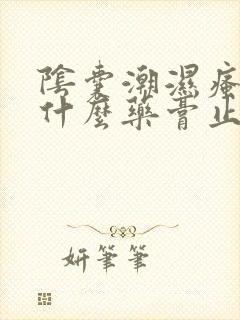 陰囊潮濕瘙
什麼藥膏止
妍筆筆